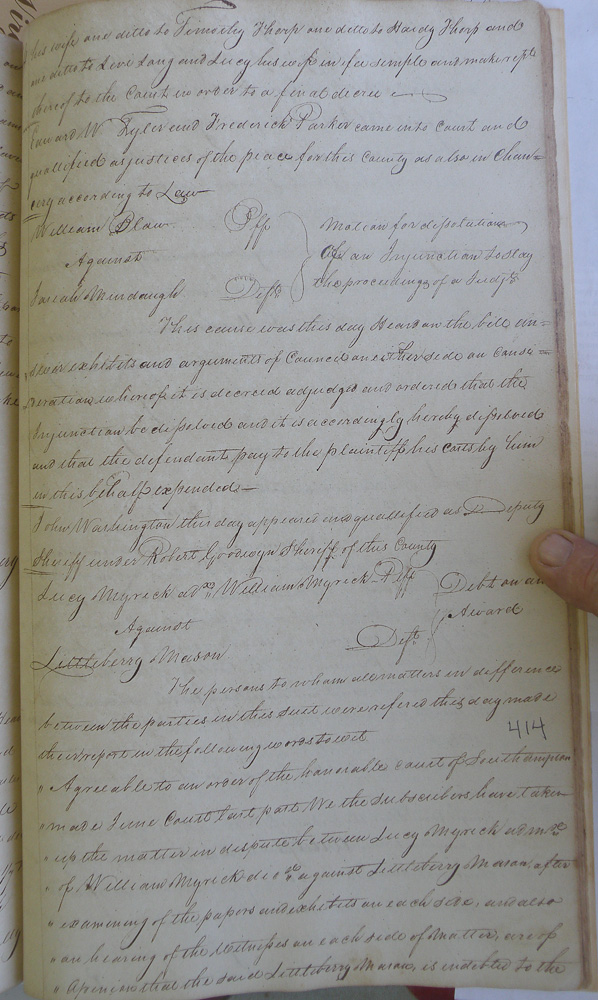 his wife one ditto to Timothy Thorp one ditto to Hardy Thorp and
one ditto to Levi Lang and Lucy his wife in fee simple and make rept
thereof to the Court in order to a final decree
Edward W Tyler and Frederick Parker came into Court and
quallified as justices of the peace for this County as also in Chan=
cery according to Law
William Blow Plff
Against
Josiah Murdaugh Deft
Motion for dissolution
of an Injunction to stay
the proceedings of a Judgt
This cause was this day Heard on the bill an=
swer exhibits and arguments of Council on either side on consi=
deration whereof it is decreed adjudged and ordered that the
Injunction be dissolved and it is accordingly hereby dissolved
and that the defendant pay to the plaintiff his costs by him
in this behalf expended
John Washington this day appeared and quallified as Deputy
Sheriff under Robert Goodwyn Sheriff of this County
Lucy Myrick adx William Myrick Plff
Against
Littleberry Mason Deft
Debt on an
Award
The persons to whom all matters in difference
between the parties in this suit were refered this day made
their report in the following words to wit
414
" Agreeable to an order of the honorable court of Southampton
" made June Court last past We the subscribers have taken
" up the matter in dispute between Lucy Myrick admx
" of William Myrick decd against Littleberry Mason, after
" examining of the papers and exhibits on each side, and also
" on hearing of the Witnesses on each side of Matter, are of
" Opinion that the said Littleberry Mason, is indebted to the